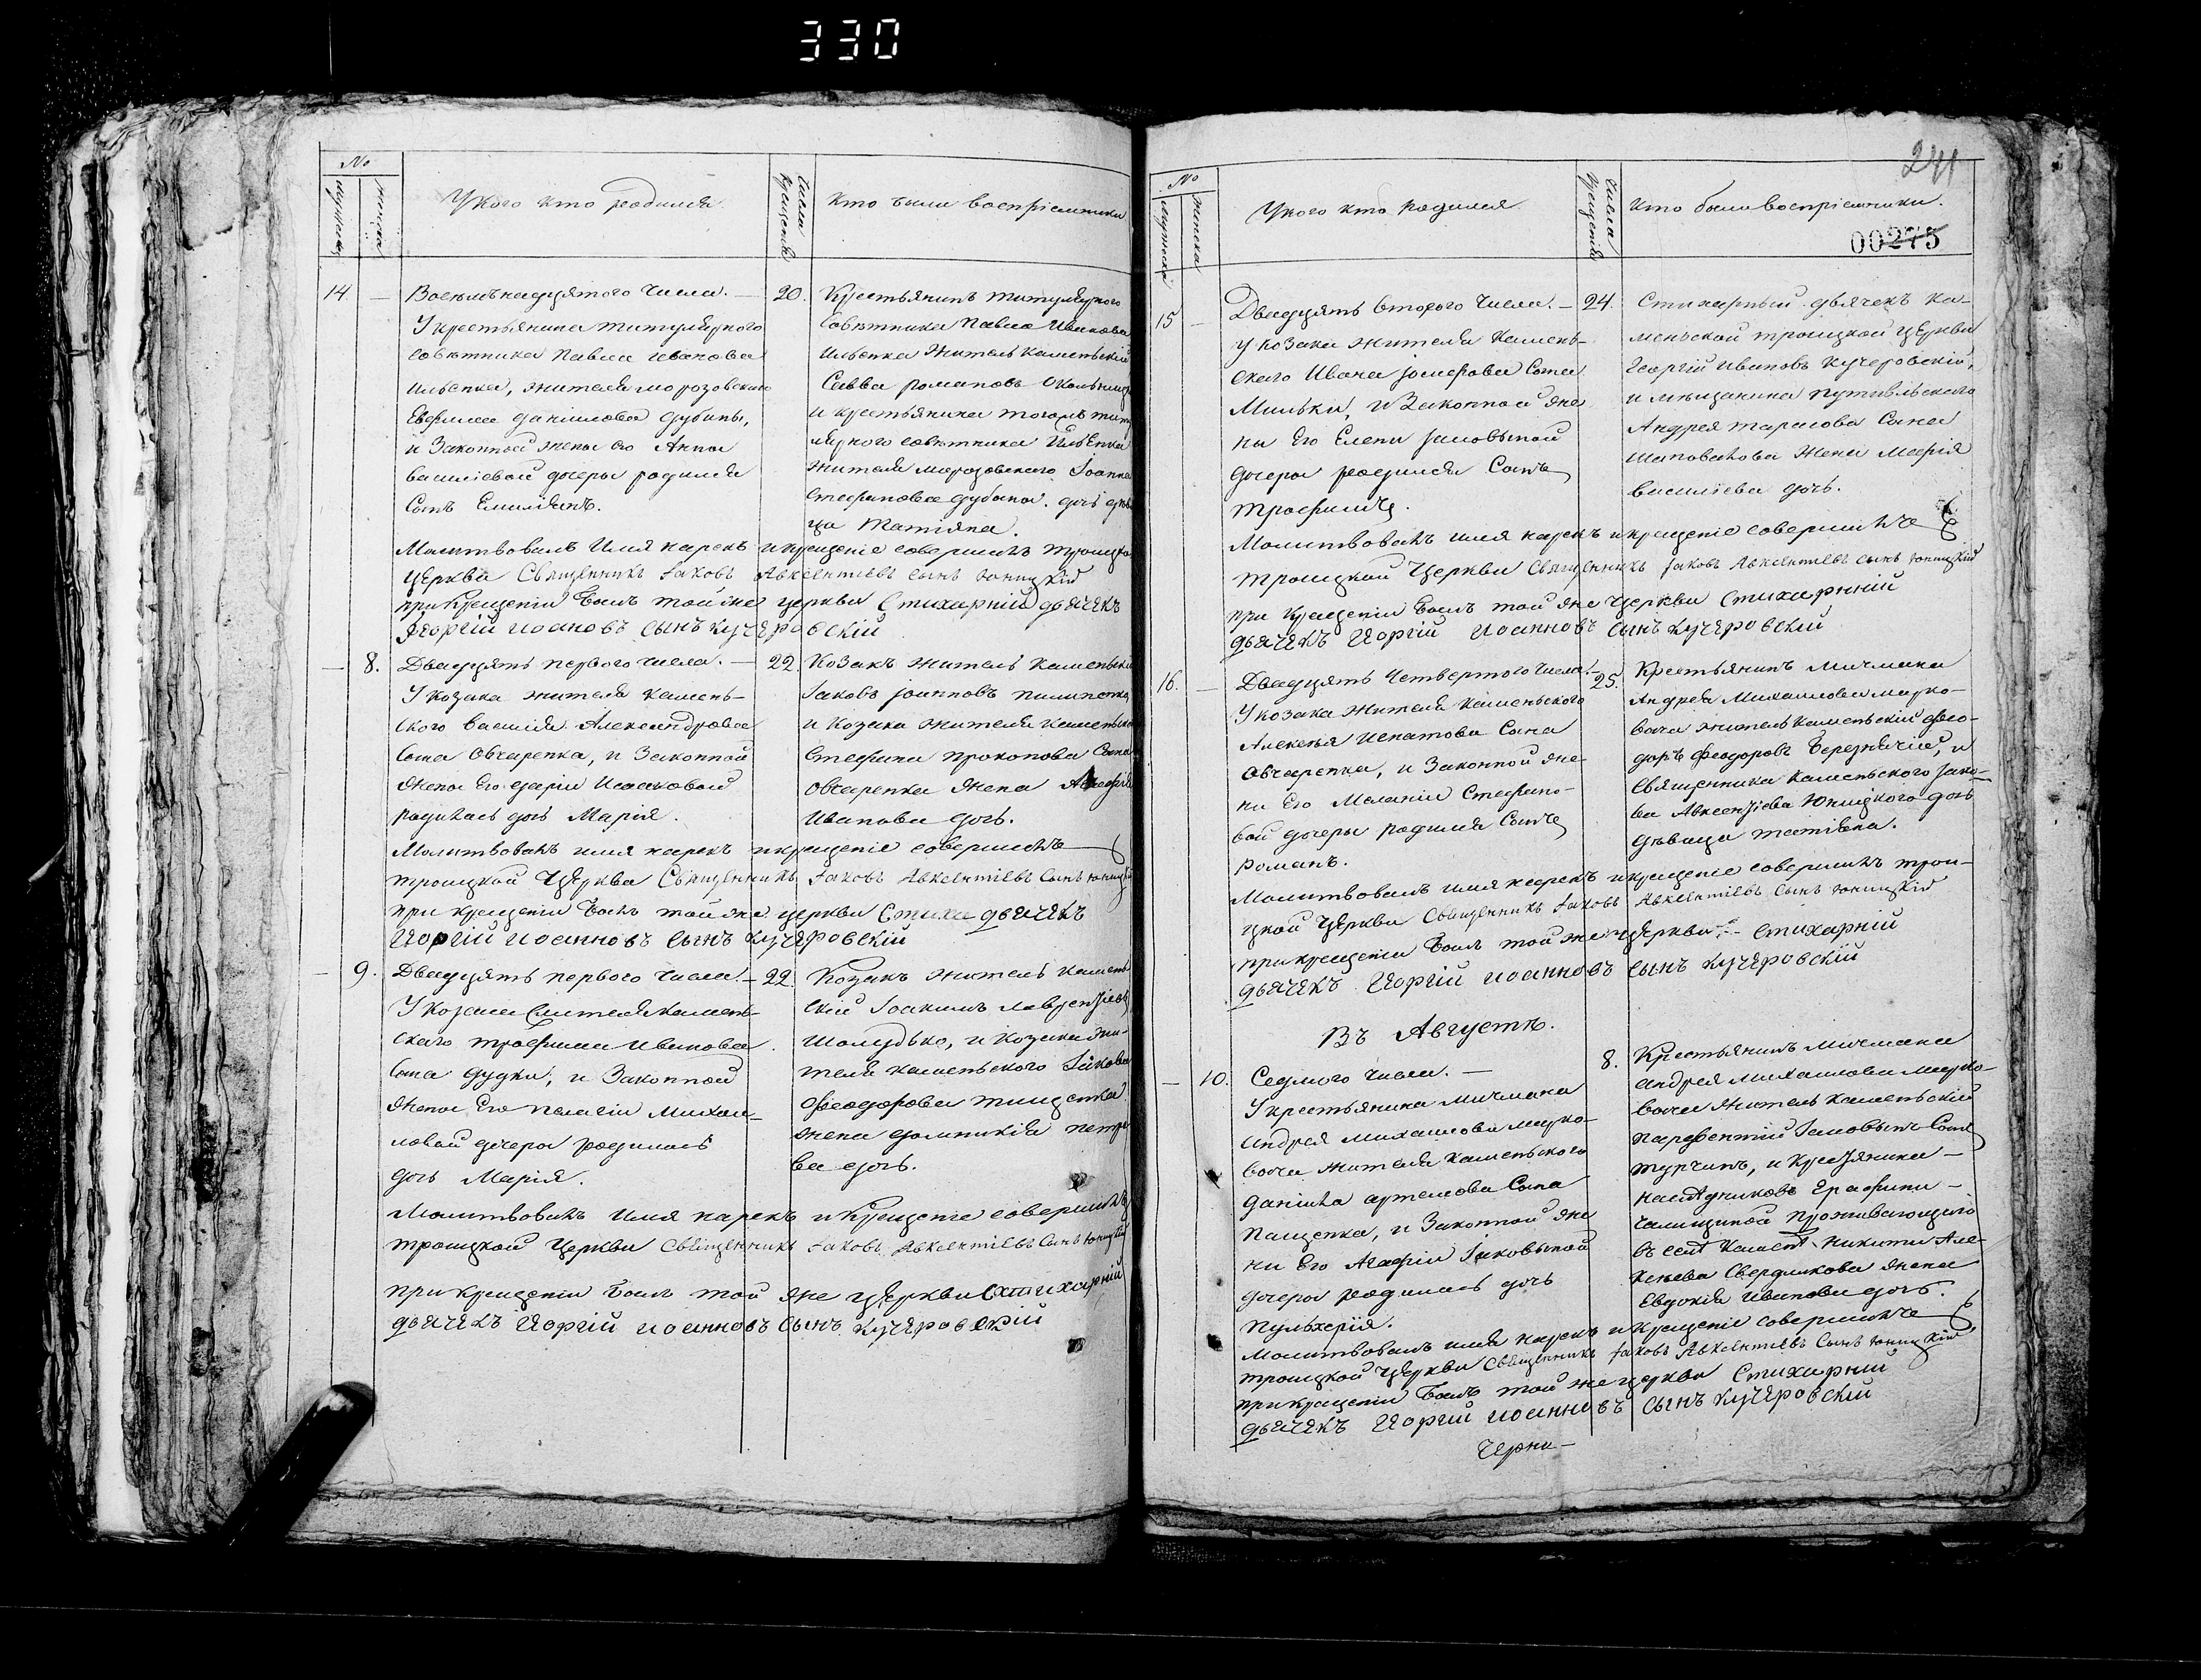 330
№
мужеска
женска
У кого кто родился
Числа крещенія
Кто были воспріемники
14.
Восемьнадцятого числа. —
У крестьянина титулярного
совѣтника Павла Иванова
Ильенка, жителя морозовского
Евфима Даніилова Дубины,
и Законной жены его Анны
василіевой дочеры родился
Сынъ Емиліянъ.
20.
Крестьянинъ титулярного
совѣтника Павла Иванова
Ильенка житель каменьскій
Савва романовъ
и крестьянина тогожъ титу
лярного совѣтника Ильенка
жителя морозовского Іоанна
Стефанова Дубины. дочь дѣви
ца татіяна.
Молитвовалъ имя нарекъ и крещеніе совершилъ троицкой
церкви Священникъ Іаковъ Авксентіевъ сынъ Юницкій
при крещеніи былъ той же церкви Стихарній дьячекъ
Георгій Иоановъ сынъ кучеровскій
8.
Двадцять первого числа. —
У козака жителя камень-
ского василія Александрова
сына Овчаренка, и Законной
жены его даріи Исааковой
родилась дочь Марія.
22.
Козакъ житель каменьскій
Іаковъ Іоанновъ пилипенко,
и козака жителя каменьского
Стефана прокопова сына
Овчаренка жена Агафія
Иванова дочь.
Молитвовалъ имя нарекъ и крещеніе совершилъ
троицкой церкви Священникъ Іаковъ Авксентіевъ сынъ Юницкій
при крещеніи былъ той же церкви Стиха дьячекъ
Георгій Иоанновъ сынъ кучеровскій
9.
Двадцять первого числа. —
У козака жителя камень-
ского трофима иванова
сына дудки, и Законной
жены его пелагіи Михаи-
ловой дочеры родилась
дочь Марія.
22.
Козакъ житель камень-
скій Іоакимъ лаврентіевъ
Шолудько, и козака жи-
теля каменьского Іакова
феодорова тищенка
жена домникія петро
ва дочь.
Молитвовалъ имя нарекъ и крещеніе совершилъ
троицкой церкви Священникъ Іаковъ Авксентіевъ сынъ Юницкій
при крещеніи былъ той же церкви Стихарній
дьячекъ Георгій Иоанновъ сынъ кучеровскій
241
№
мужеска
женска
У кого кто родился
Числа крещенія
Кто были воспріемники.
00275
15
Двадцять второго числа. —
У козака жителя камень-
ского Ивана сына
Мильки, и Законной же-
ны его Елены
дочеры родился сынъ
трофимъ.
24.
Стихарный дьячекъ ка-
меньской троицкой церкви
Георгій Ивановъ кучеровскій,
и мѣщанина путивльского
Андрея тарасова сына
Шаповалова жена Марія
василіева дочь.
Молитвовалъ имя нарекъ и крещеніе совершилъ
троицкой церкви Священникъ Іаковъ Авксентіевъ сынъ Юницкій
при крещеніи былъ той же церкви Стихарній
дьячекъ Георгій Иоанновъ сынъ кучеровскій
16.
Двадцять четвертого числа. —
У козака жителя каменьского
Алексѣя Игнатова сына
Овчаренка, и Законной же-
ны его Меланіи Стефано-
вой дочеры родился сынъ
романъ.
25.
Крестьянинъ мичмана
Андрея Михаилова марко-
вича житель каменьскій фео-
доръ феодоровъ Березнячій, и
Священника каменьского Іако-
ва Авксентіева Юницкого дочь
дѣвица татіяна.
Молитвовалъ имя нарекъ и крещеніе совершилъ трои-
цкой церкви Священникъ Іаковъ Авксентіевъ сынъ Юницкій
при крещеніи былъ той же церкви: — Стихарній
дьячекъ Георгій Иоанновъ сынъ кучеровскій
Въ Августѣ.
10.
Седмого числа. —
У крестьянина мичмана
андрея михаилова марко-
вича жителя каменьского
даніила артемова сына
пащенка, и Законной же
ны его Агафіи Іаковлевой
дочеры родилась дочь
пульхерія.
8.
Крестьянинъ мичмана
андрея михаилова марко-
вича житель каменьскій
парфентій сынъ
турчинъ, и крестьянина —
наслѣдниковъ Ерафини —
проживающаго
въ селѣ каменѣ никиты Але-
ксѣева Свердликова жена
Евдокія Иванова дочь.
Молитвовалъ имя нарекъ и крещеніе совершилъ
троицкой церкви Священникъ Іаковъ Авксентіевъ сынъ Юницкій
при крещеніи былъ той же церкви Стихарній
дьячекъ Георгій Иоанновъ сынъ кучеровскій
Черни —